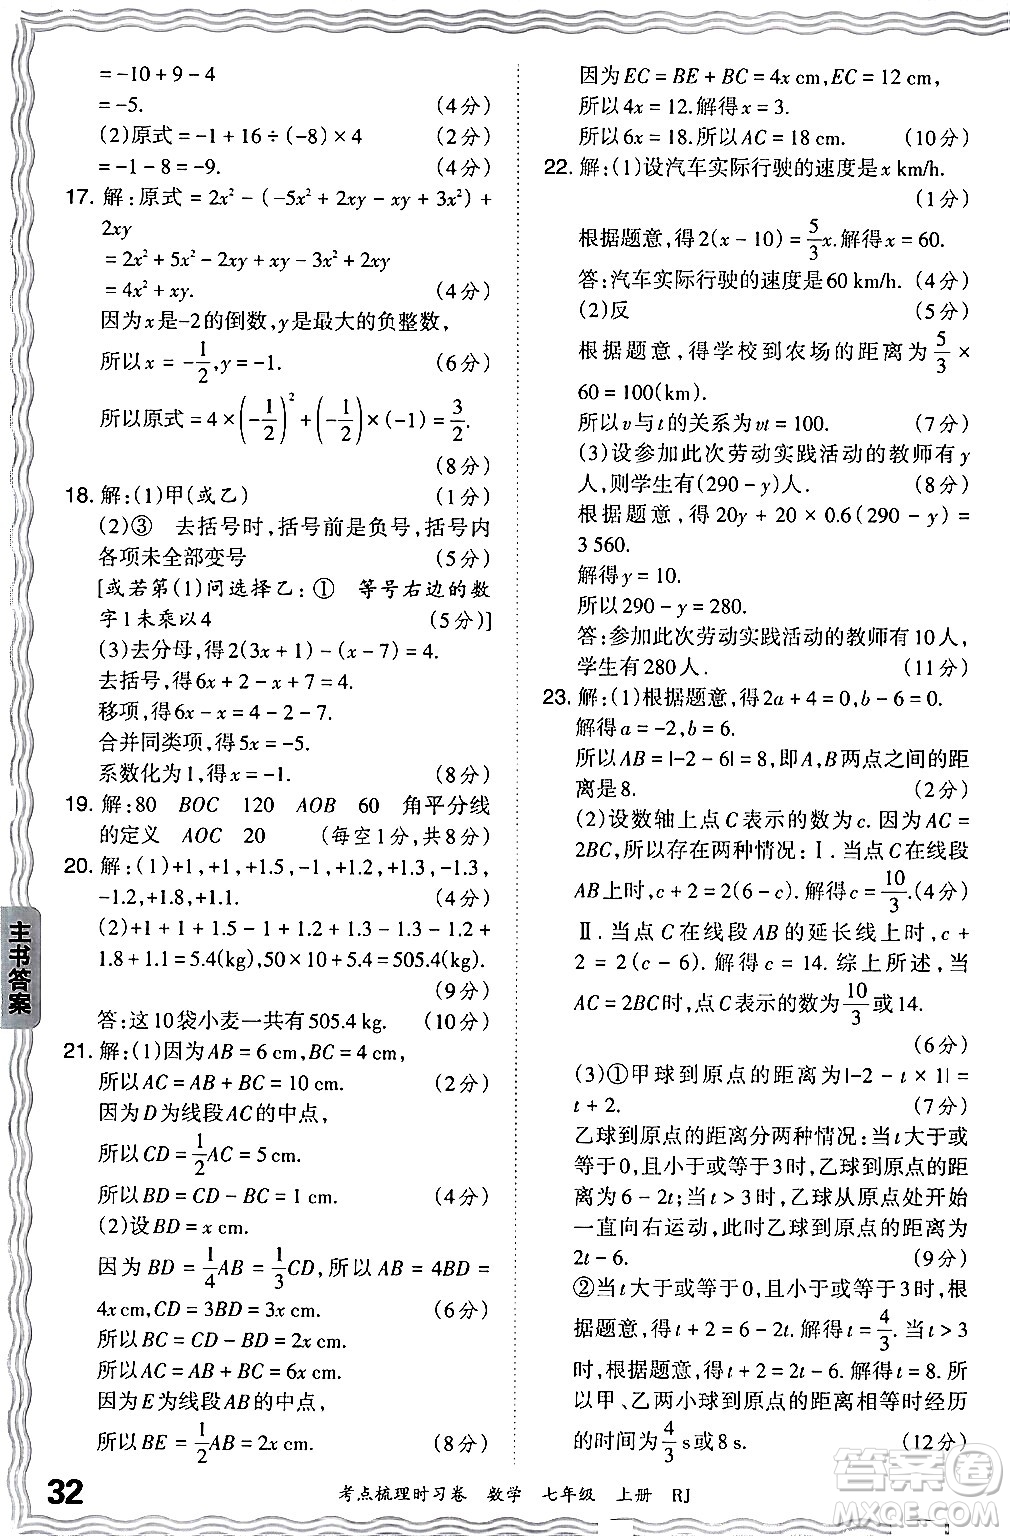 = -10 + 9 - 4
= -5. (4分)
(2)原式 = -1 + 16 ÷ (-8) × 4 (2分)
= -1 - 8 = -9. (4分)
17. 解:原式 = 2x² - (-5x² + 2xy - xy + 3x²) +
2xy
= 2x² + 5x² - 2xy + xy - 3x² + 2xy
= 4x² + xy. (4分)
因为x是-2的倒数,y是最大的负整数,
所以x = -1/2,y = -1. (6分)
所以原式 = 4×(-1/2)² + (-1/2)×(-1) = 3/2.
(8分)
18. 解:(1)甲(或乙) (1分)
(2)③ 去括号时,括号前是负号,括号内
各项未全部变号 (5分)
[或若第(1)问选择乙:① 等号右边的数
字1未乘以4 (5分)]
(3)去分母,得2(3x + 1) - (x - 7) = 4.
去括号,得6x + 2 - x + 7 = 4.
移项,得6x - x = 4 - 2 - 7.
合并同类项,得5x = -5.
系数化为1,得x = -1. (8分)
19. 解:80 BOC 120 AOB 60 角平分线
的定义 AOC 20 (每空1分,共8分)
20. 解:(1)+1,+1,+1.5,-1,+1.2,+1.3,-1.3,
-1.2,+1.8,+1.1. (4分)
(2)+1 + 1 + 1.5 - 1 + 1.2 + 1.3 - 1.3 - 1.2 +
1.8 + 1.1 = 5.4(kg),50×10 + 5.4 = 505.4(kg).
(9分)
答:这10袋小麦一共有505.4 kg. (10分)
21. 解:(1)因为AB = 6 cm,BC = 4 cm,
所以AC = AB + BC = 10 cm. (2分)
因为D为线段AC的中点,
所以CD = 1/2 AC = 5 cm.
所以BD = CD - BC = 1 cm. (4分)
(2)设BD = x cm.
因为BD = 1/4 AB = 1/3 CD,所以AB = 4BD =
4x cm,CD = 3BD = 3x cm. (6分)
所以BC = CD - BD = 2x cm.
所以AC = AB + BC = 6x cm.
因为E为线段AB的中点,
所以BE = 1/2 AB = 2x cm. (8分)
因为EC = BE + BC = 4x cm,EC = 12 cm,
所以4x = 12.解得x = 3.
所以6x = 18.所以AC = 18 cm. (10分)
22. 解:(1)设汽车实际行驶的速度是x km/h.
(1分)
根据题意,得2(x - 10) = 5/3 x.解得x = 60.
答:汽车实际行驶的速度是60 km/h. (4分)
(2)反 (5分)
根据题意,得学校到农场的距离为 5/3 ×
60 = 100(km).
所以v与t的关系为vt = 100. (7分)
(3)设参加此次劳动实践活动的教师有y
人,则学生有(290 - y)人. (8分)
根据题意,得20y + 20 × 0.6(290 - y) =
3 560.
解得y = 10.
所以290 - y = 280.
答:参加此次劳动实践活动的教师有10人,
学生有280人. (11分)
23. 解:(1)根据题意,得2a + 4 = 0,b - 6 = 0.
解得a = -2,b = 6.
所以AB = |-2 - 6| = 8,即A,B两点之间的距
离是8. (2分)
(2)设数轴上点C表示的数为c.因为AC =
2BC,所以存在两种情况:Ⅰ.当点C在线段
AB上时,c + 2 = 2(6 - c).解得c = 10/3.(4分)
Ⅱ.当点C在线段AB的延长线上时,c +
2 = 2(c - 6).解得c = 14.综上所述,当
AC = 2BC时,点C表示的数为10/3或14.
(6分)
(3)①甲球到原点的距离为|-2 - t × 1| =
t + 2. (7分)
乙球到原点的距离分两种情况:当t大于或
等于0,且小于或等于3时,乙球到原点的距
离为6 - 2t;当t > 3时,乙球从原点处开始
一直向右运动,此时乙球到原点的距离为
2t - 6. (9分)
②当t大于或等于0,且小于或等于3时,根
据题意,得t + 2 = 6 - 2t.解得t = 4/3.当t > 3
时,根据题意,得t + 2 = 2t - 6.解得t = 8.所
以甲、乙两小球到原点的距离相等时经历
的时间为4/3 s或8 s. (12分)
主书答案
32
考点梳理时习卷 数学 七年级 上册 RJ